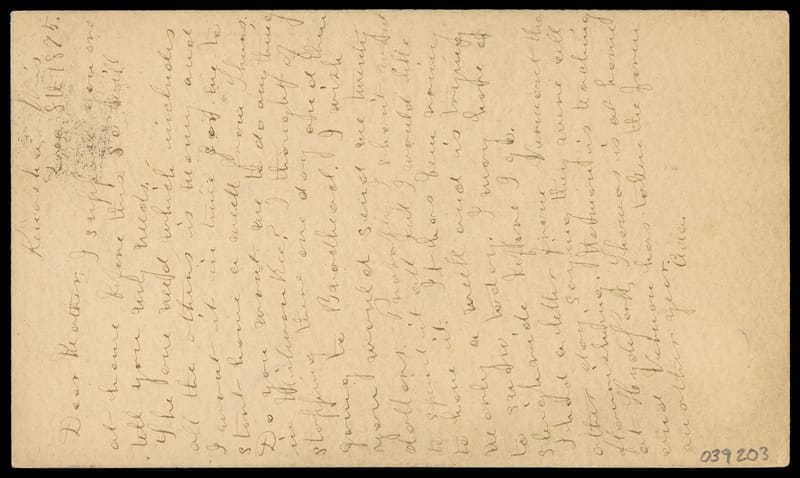 Kenosha, Wis
Dec. 8th 1875.
Dear Brother, I suppose you are
at home before this so will
tell you my needs.
The one need which includes
all the others is money and
I want it in time for me to
start home a week from Thurs.
Do you want me to do anything
in Milwaukee? I thought of
stopping there one day and then
going to Brodhead. I wish
you would send me twenty
dollars. Probably I shan't want
to spend it all but I would like
to have it. It has been raining
nearly a week and is trying
to snow today. I may hope of
sleighride before I go.
I had a letter from Vermont the
other day saying they were all
flourishing. Herman is teaching
at Hydepark, Thomas is at home
and Vernon has taken the farm
another year. Ada.
039203